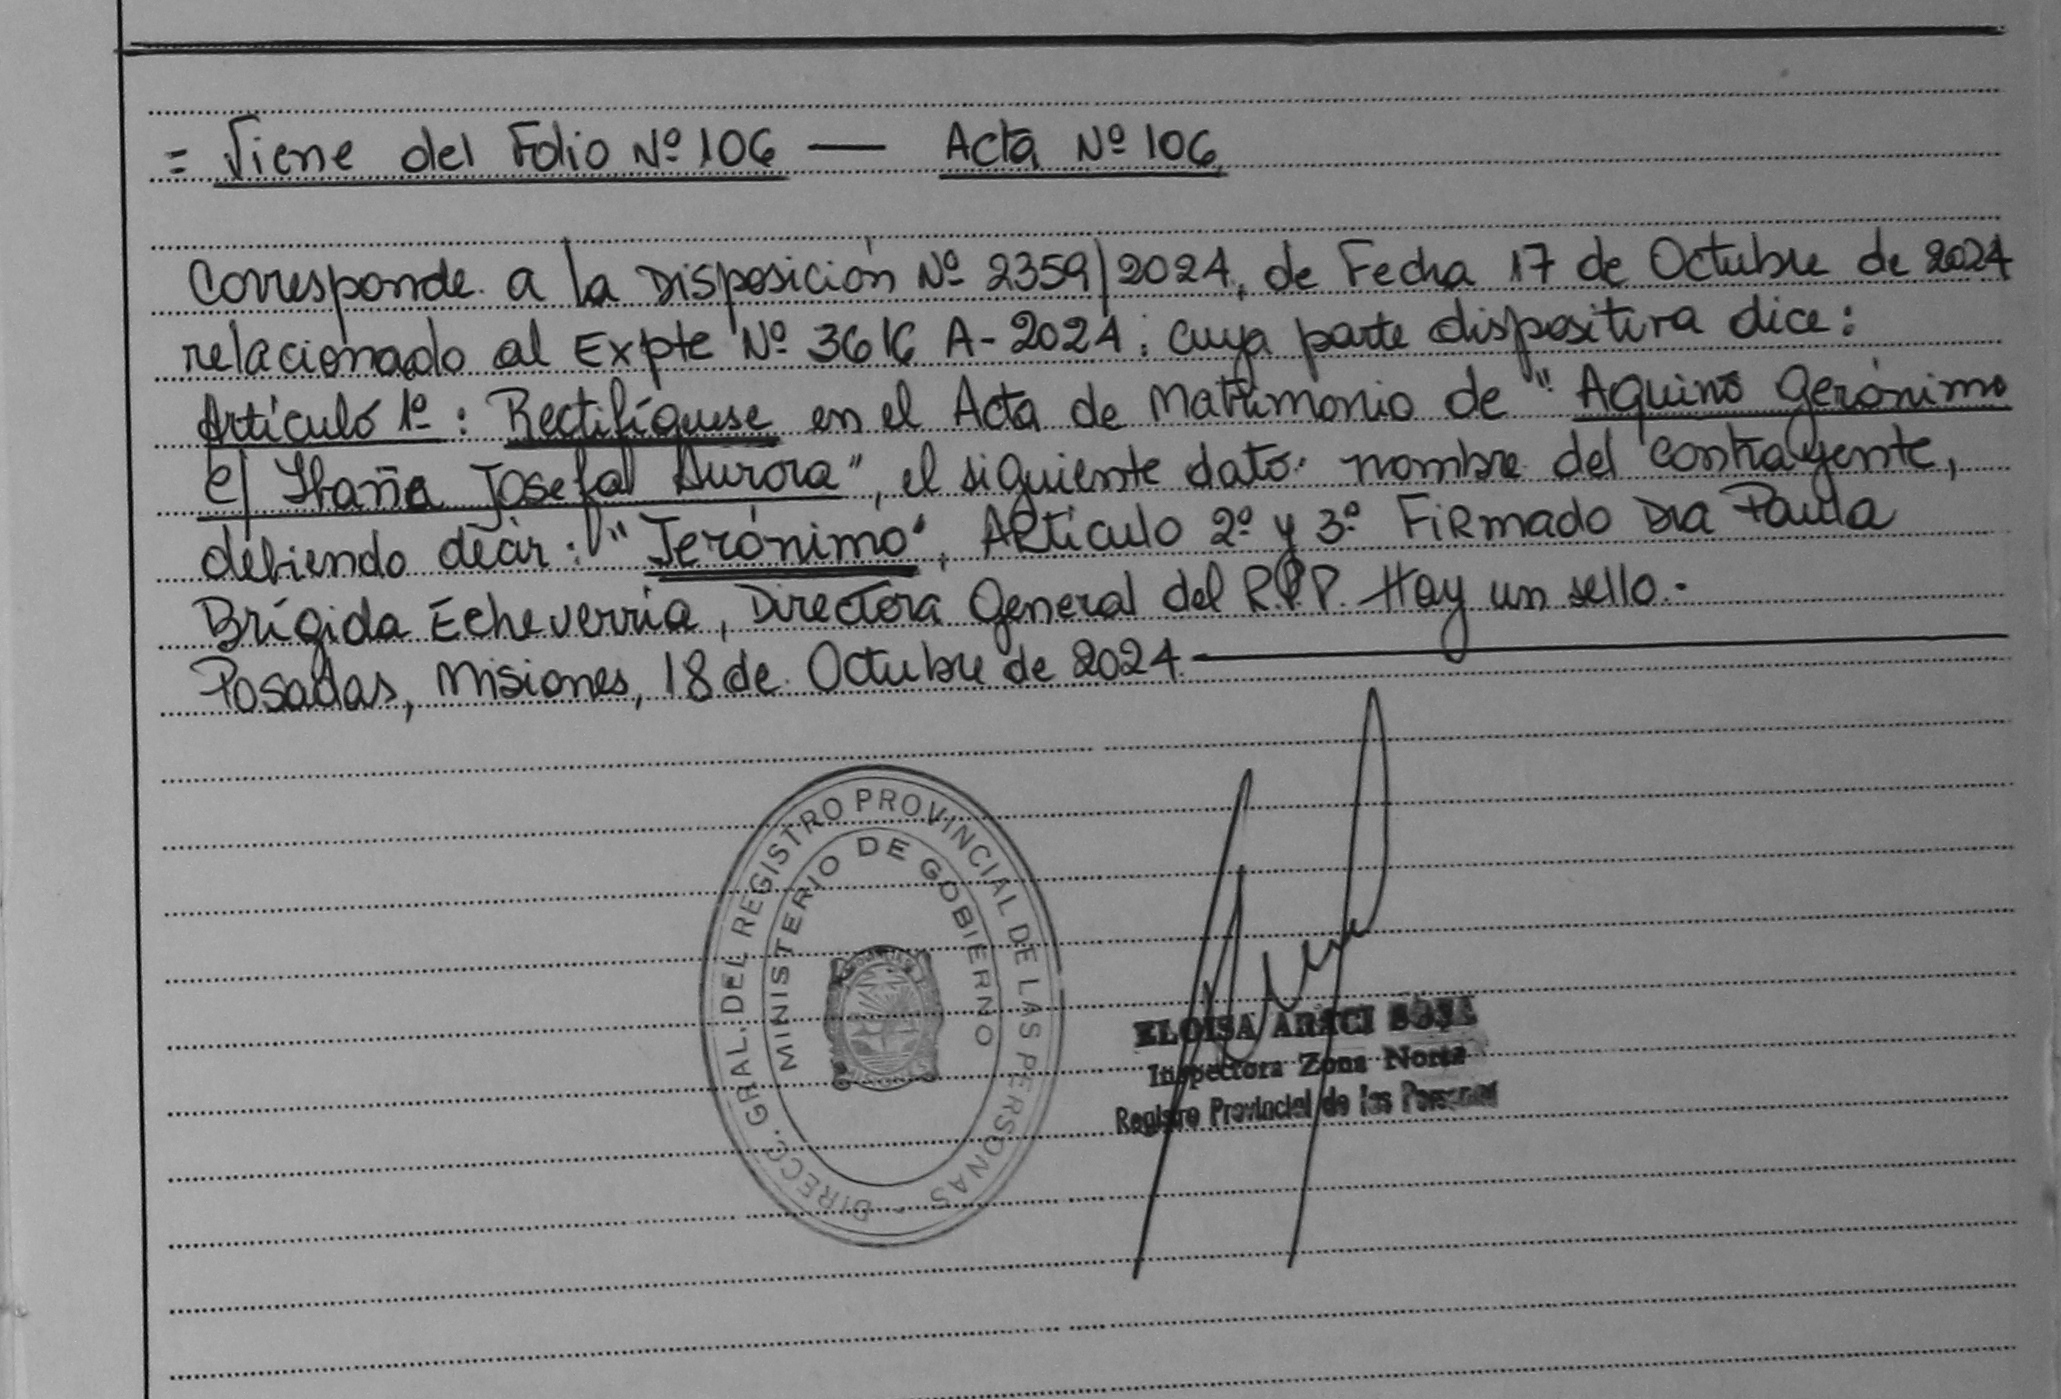 = Viene del Folio Nº 106 — Acta Nº 106
Corresponde a la Disposición Nº 2359/2024, de Fecha 17 de Octubre de 2024
relacionado al Expte Nº 3616 A-2024; cuya parte dispositiva dice:
Artículo 1º: Rectifíquese en el Acta de Matrimonio de "Aquino Gerónimo
c/ Josefa Aurora", el siguiente dato: nombre del contrayente,
debiendo decir: "Jerónimo". Artículo 2º y 3º Firmado Dra Paula
Brígida Echeverria, Directora General del R.P.P. Hay un sello.-
Posadas, Misiones, 18 de Octubre de 2024.
DIRECC. GRAL. DEL REGISTRO PROVINCIAL DE LAS PERSONAS -
MINISTERIO DE GOBIERNO
MISIONES
ELOISA ARACI SOSA
Inspectora Zona Norte
Registro Provincial de las Personas